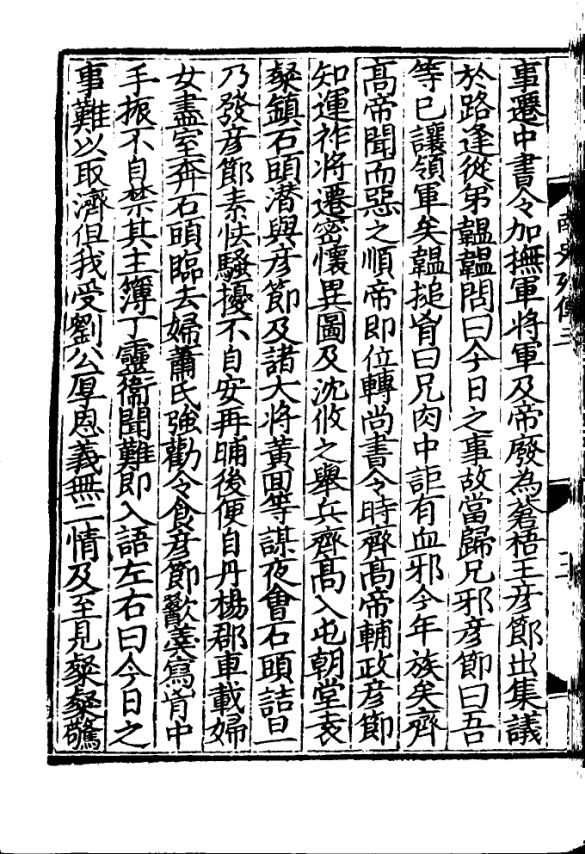 事遷中書令加撫軍將軍及帝廢為蒼梧王彦節出集議
於路逢從弟韞韞問曰今日之事故當歸兄邪彦節曰吾
等已讓領軍矣韞搥胷曰兄肉中詎有血邪今年族矣齊
髙帝聞而惡之順帝即位轉尚書令時齊髙帝輔政彦節
知運祚將遷密懷異圖及沈攸之舉兵齊髙入屯朝堂袁
粲鎮石頭潜與彦節及諸大將黄回等謀夜㑹石頭詰旦
乃發彦節素怯騷擾不自安再晡後便自丹楊郡車載婦
女盡室奔石頭臨去婦蕭氏強勸令食彦節歠羮寫胷中
手振不自禁其主簿丁靈衞聞難即入語左右曰今日之
事難以取濟但我受劉公厚恩義無二情及至見粲粲驚